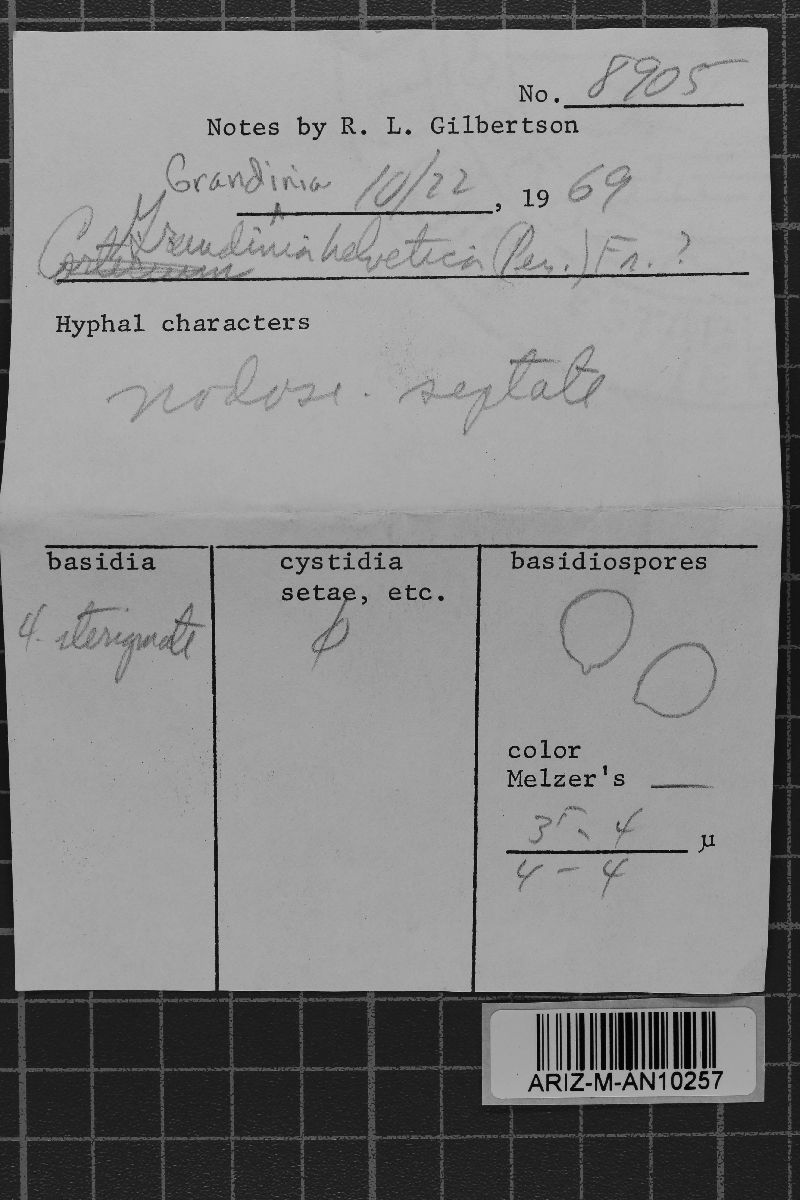 No. 8905
Notes by R. L. Gilbertson
Grandinia 10/22, 19 69
Corticium Grandinia helvetica (Per.) Fr. ?
Hyphal characters
nodose. septate
basidia
4. sterigmate
cystidia
setae, etc.
φ
basidiospores
color
Melzer's —
35-4 µ
4 - 4
ARIZ-M-AN10257